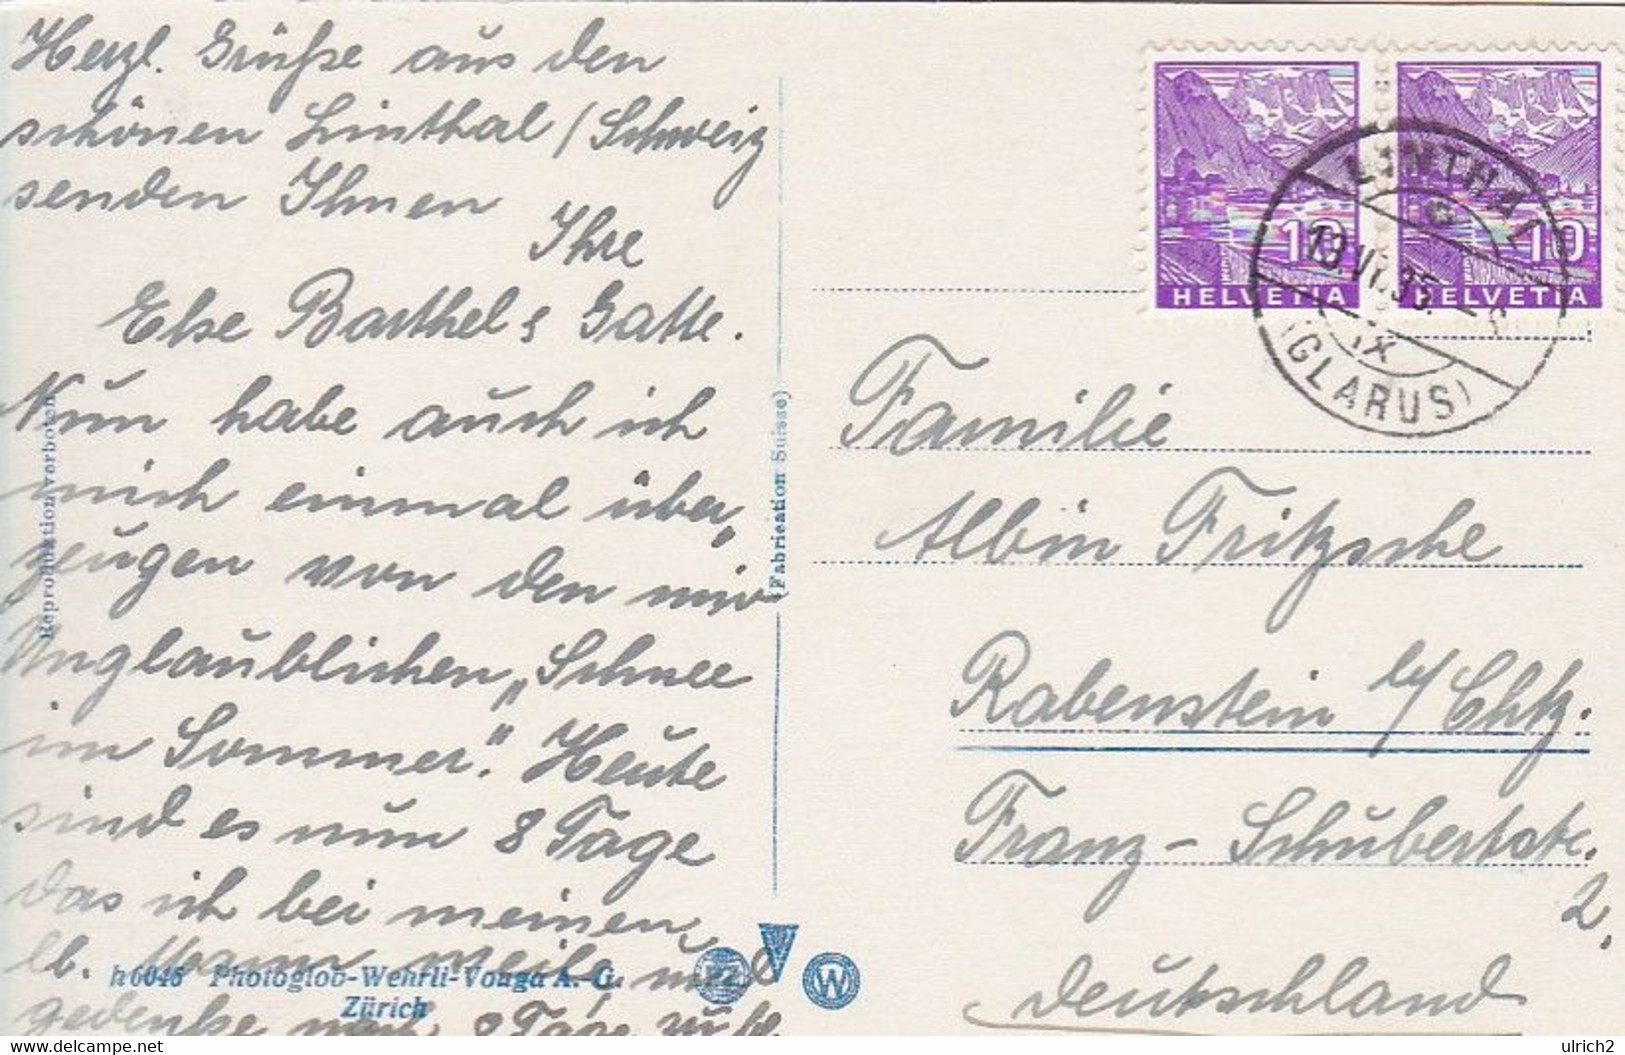 Herzl. Grüße aus den
schönen Linthal / Schweiz
senden Ihnen
Ihre
Else Barthel & Gatte.
Nun habe auch ich
mich einmal über„
zeugen von den mir
Unglaublichen „Schnee
im Sommer". Heute
sind es nun 8 Tage
das ich bei meinen
lb. Mann weile, und
gedenke noch 8 Tage
Reproduktion verboten
h 6046 Photoglob-Wehrli-Vouga A.-G.
Zürich
(Fabrication Suisse)
PZ
W
10
HELVETIA
10
HELVETIA
LINTHAL
(GLARUS)
Familie
Albin Fritzsche
Rabenstein b/ Chtz.
Franz-Schubertstr.
2.
Deutschland
delcampe.net
ulrich2